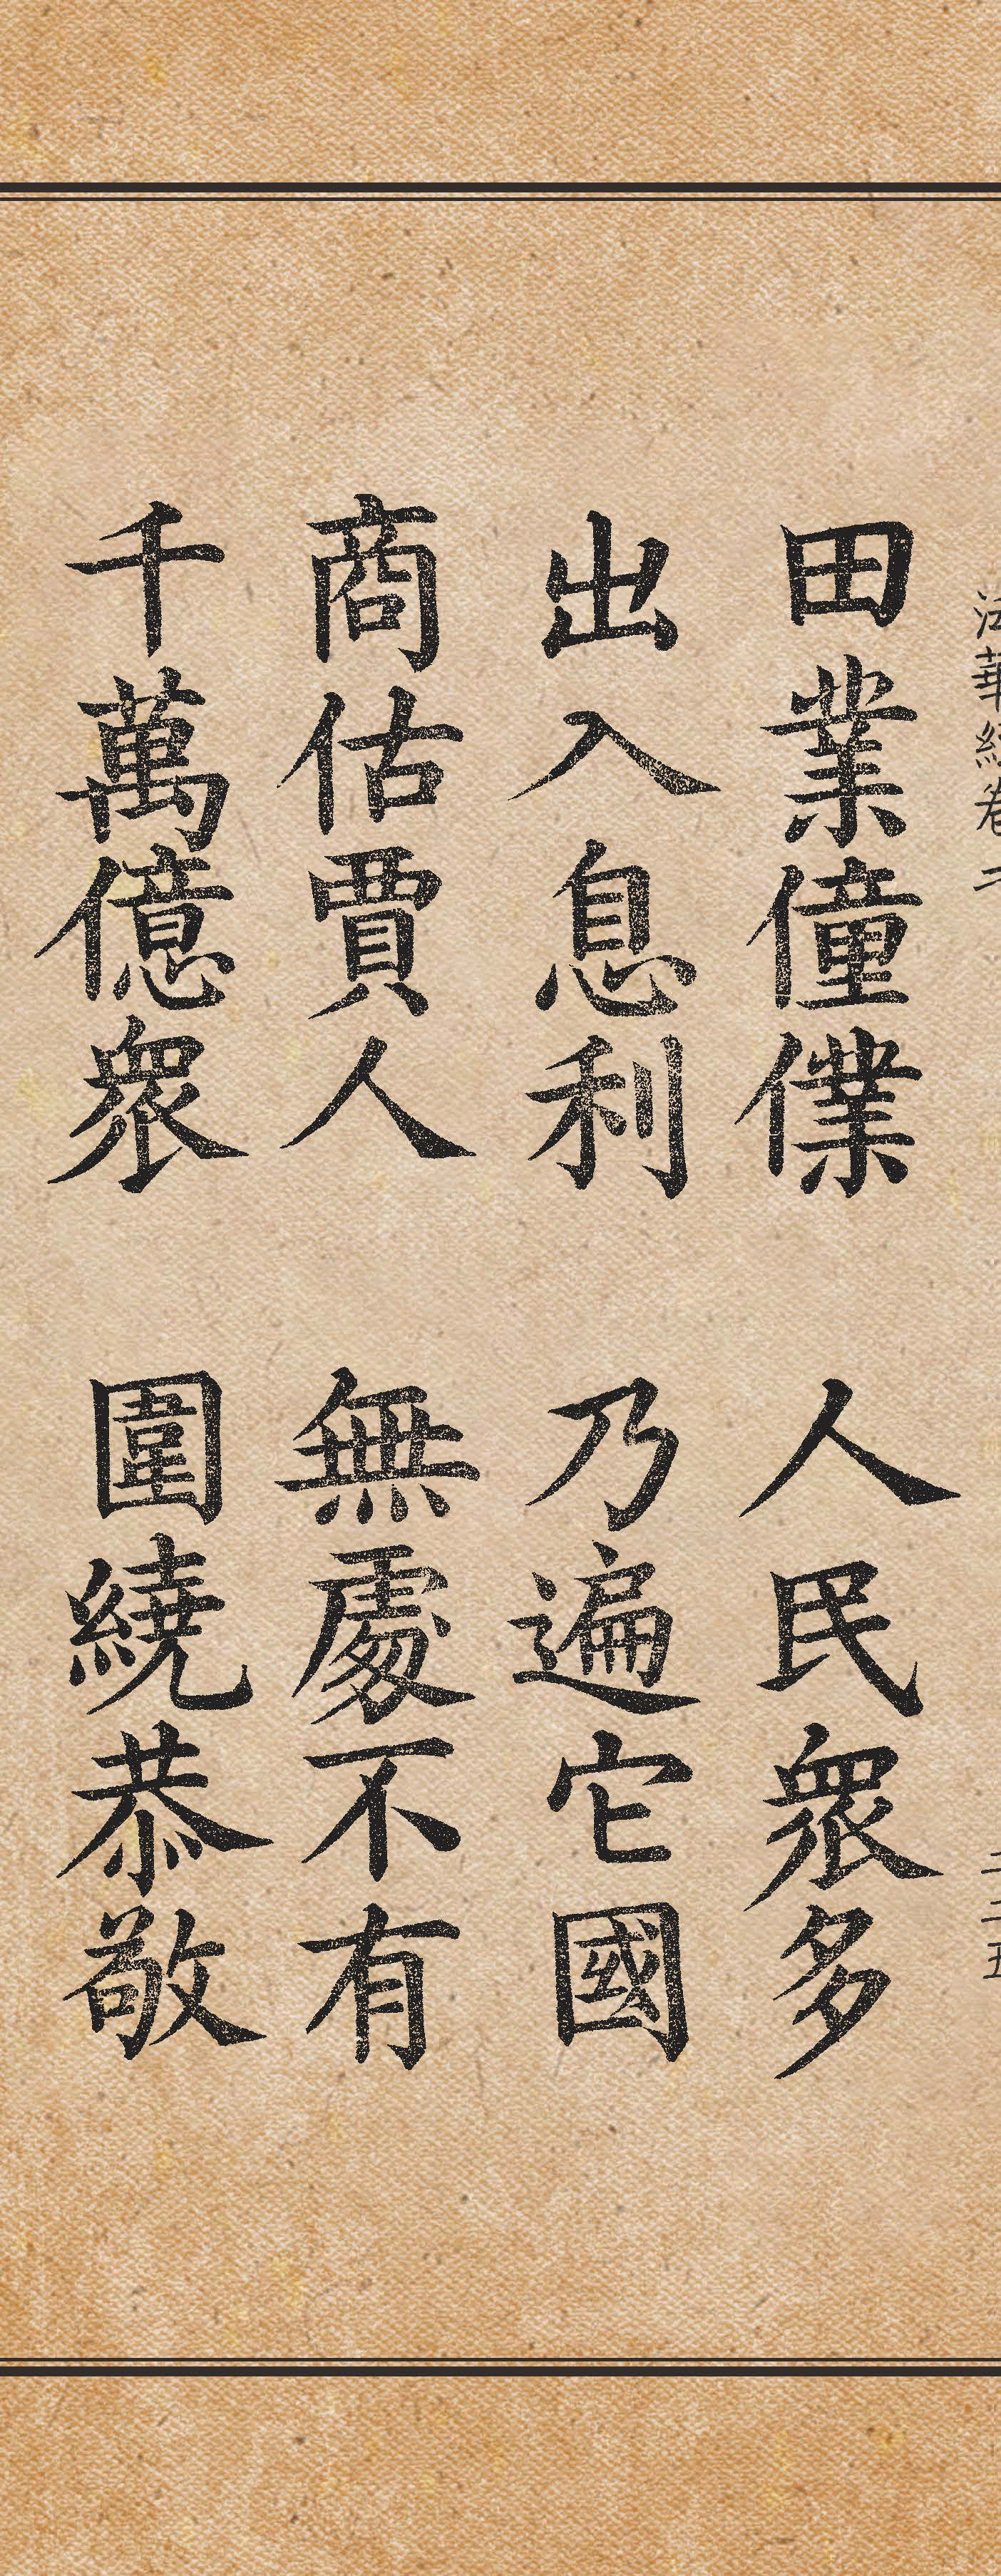 法華經卷二
二二五
田業僮僕 人民衆多
出入息利 乃遍它國
商估賈人 無處不有
千萬億衆 圍繞恭敬